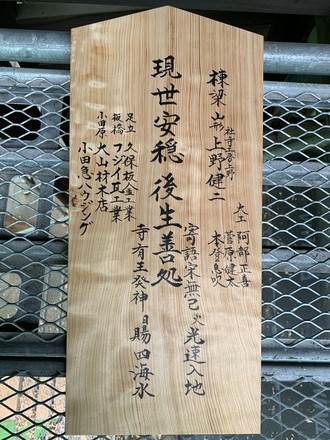 棟梁 山形 社寺工房上野 上野健二
大工 阿部正喜
菅原健太
現世安穏 後生善処
寄語宋無忌 火光速入地
寺有壬癸神 日賜四海水
足立 久保板金工業
板橋 フジイ瓦工業
小田原 大山材木店
小田急ハウジング